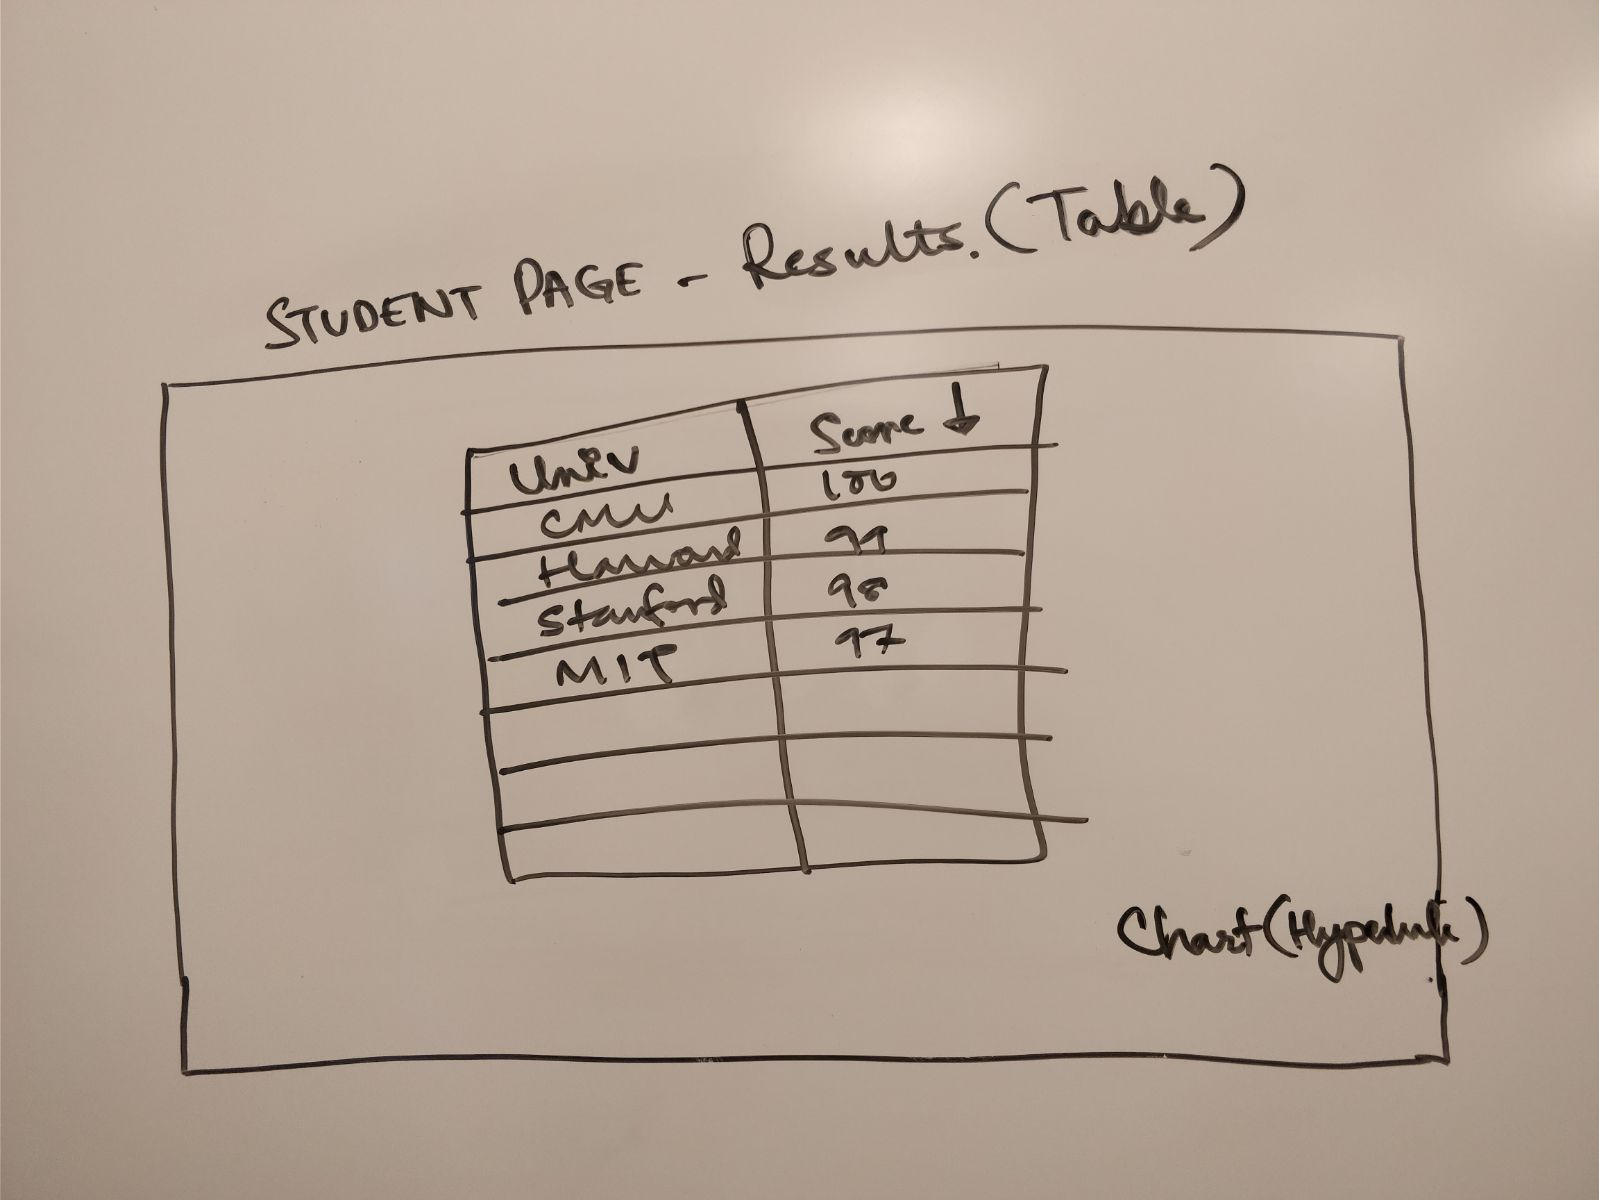 STUDENT PAGE - Results. (Table)
Univ Score ↓
CMU 100
Harvard 99
Stanford 98
MIT 97
Chart (Hyperlink)